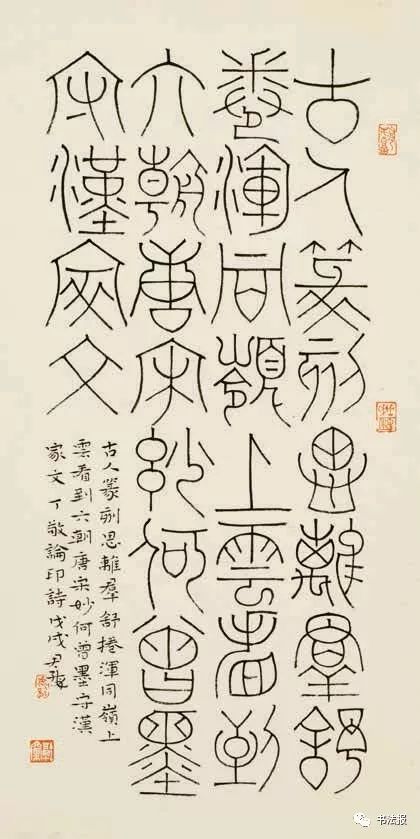 古人篆刻思離羣舒
卷渾同嶺上雲看到
六朝唐宋妙何曾墨
守漢家文
古人篆刻思離羣舒捲渾同嶺上
雲看到六朝唐宋妙何曾墨守漢
家文丁敬論印詩戊戌尹
书法报